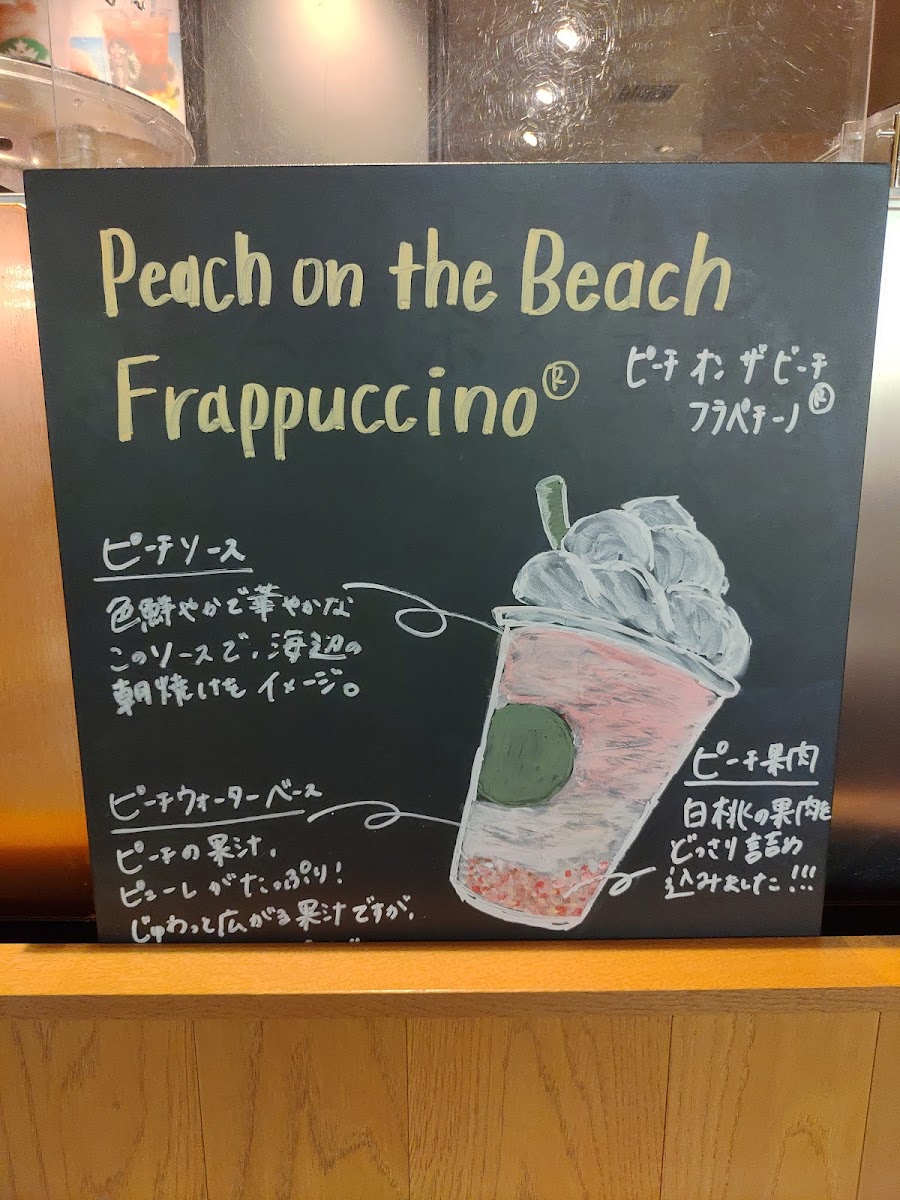 Peach on the Beach
Frappuccino®
ピーチ オン ザ ビーチ
フラペチーノ®
ピーチソース
色鮮やかで華やかな
このソースで、海辺の
朝焼けを イメージ。
ピーチウォーターベース
ピーチの果汁、
ピューレがたっぷり!
じゅわっと広がる果汁ですが、
ピーチ果肉
白桃の果肉を
どっさり詰め
込みました!!!